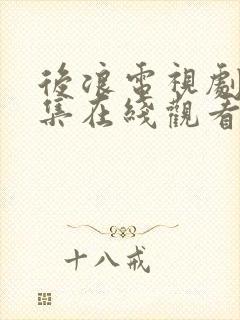 後浪電視劇
集在綫觀看
十八戒